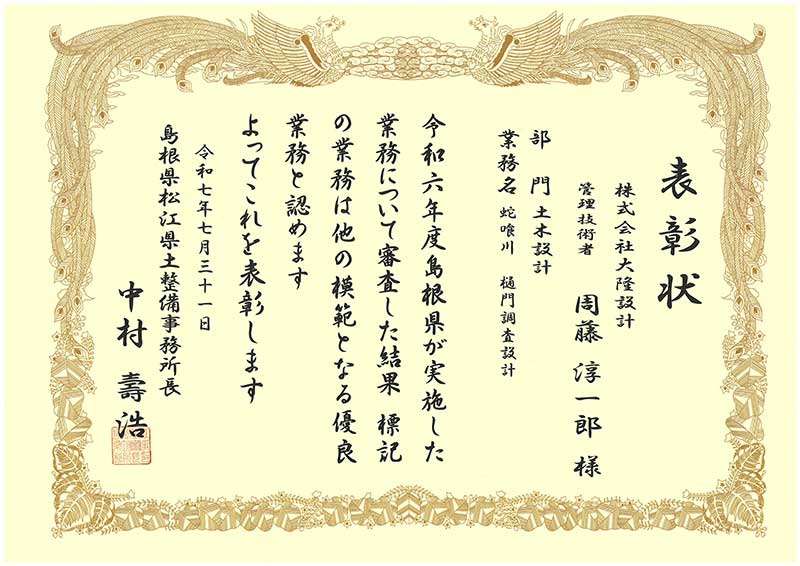 表彰状
株式会社大隆設計
管理技術者 周藤 淳一郎 様
部 門 土木設計
業務名 蛇喰川 樋門調査設計
令和六年度島根県が実施した
業務について審査した結果 標記
の業務は他の模範となる優良
業務と認めます
よってこれを表彰します
令和七年七月三十一日
島根県松江県土整備事務所長
中村 壽浩